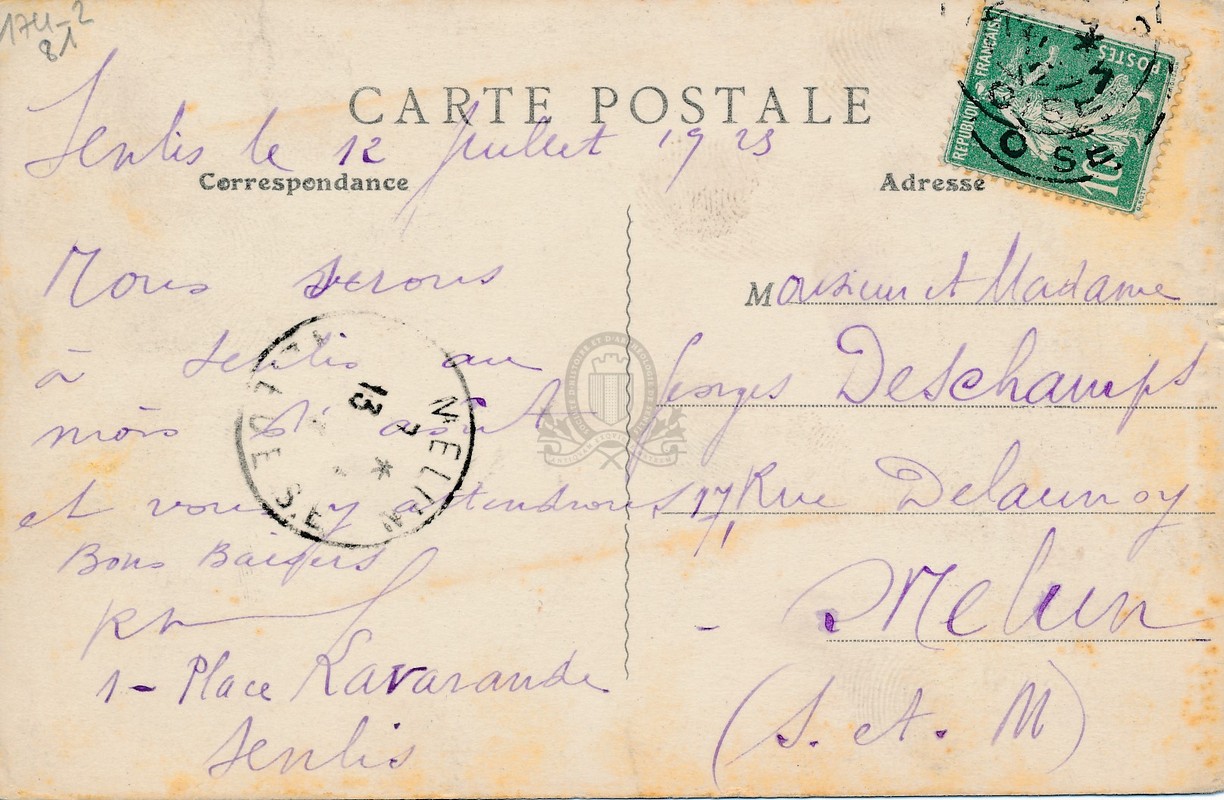 174-2
81
CARTE POSTALE
Senlis le 12 Juillet 1923
Correspondance
Nous serons
à Senlis au
mois d'août
et vous y attendrons
Bons Baisers
1 - Place Lavarande
Senlis
Adresse
Monsieur et Madame
Georges Deschamps
17 Rue Delaunoy
- Melun
(S. et. M)
REPUBLIQUE FRANÇAISE
POSTES
10
OISE
MELUN
13
7
*
S.E